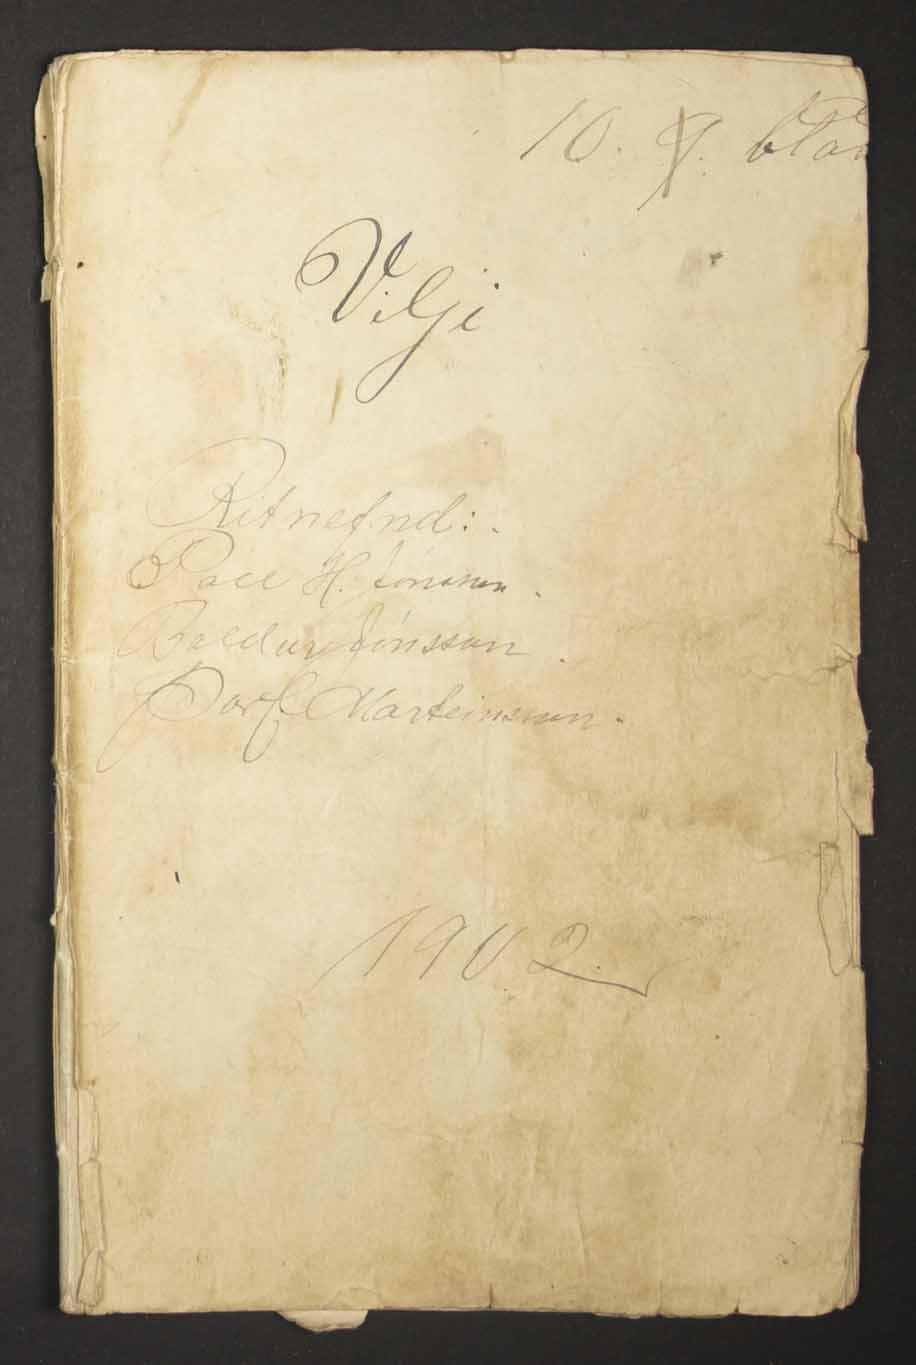 10. 9. blað
Vilji
Ritnefnd:.
Páll H. Jónsson.
Baldur Jónsson.
Þorf Marteinsson.
1902.